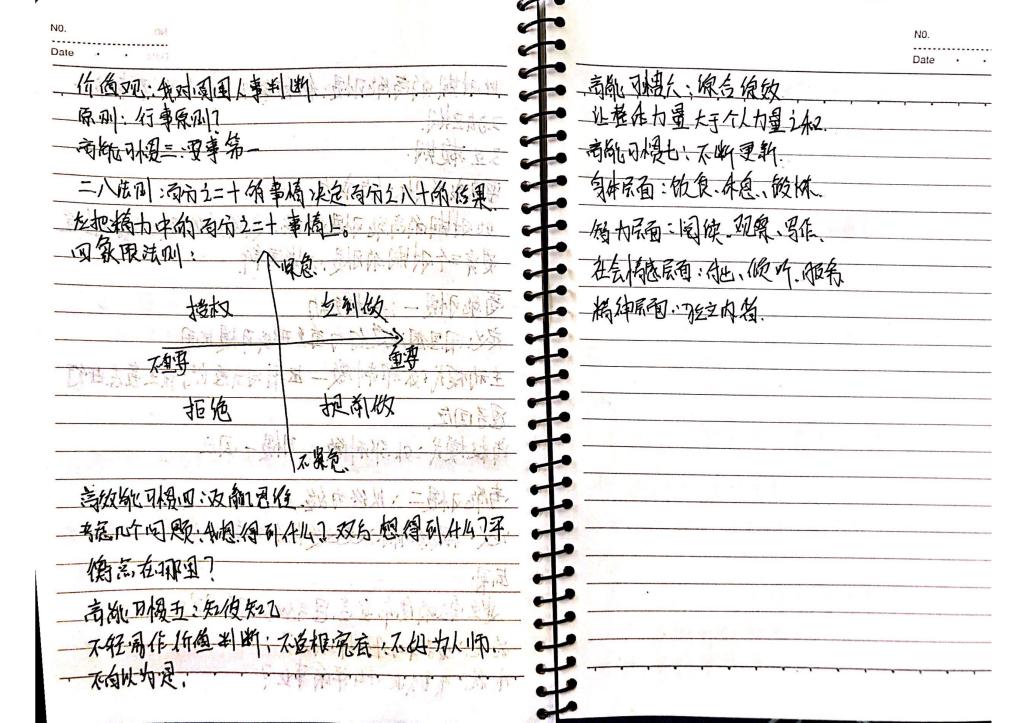 NO.
Date
价值观：我对周围人事判断
原则：行事原则？
高能习惯三：要事第一
二八法则：百分之二十的事情决定百分之八十的结果
把精力中的百分之二十事情上。
四象限法则：
紧急
授权 立刻做
不重要 重要
拒绝 提前做
不紧急
高效能习惯四：双赢思维
考虑几个问题：我想得到什么？对方想得到什么？平
衡点在哪里？
高能习惯五：知彼知己
不轻易作价值判断；不追根究底；不好为人师.
不自以为是；
NO.
Date
高能习惯六：综合综效
让整体力量大于个人力量之和.
高能习惯七：不断更新.
身体层面：饮食、休息、锻炼.
智力层面：阅读、观察、写作.
社会情感层面：付出、倾听、服务
精神层面：内省.